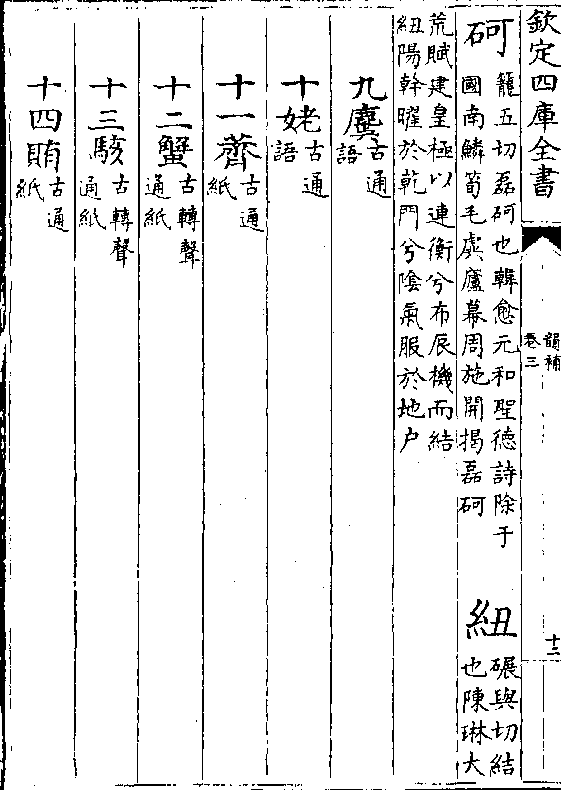 欽定四庫全書
韻補
卷三
十三
砢籠五切磊砢也韓愈元和聖德詩除于
國南鱗筍毛虡廬幕周施開揭磊砢
紐碾與切結
也陳琳大
荒賦建皇極以連衡兮布辰機而結
紐陽幹曜於乾門兮陰氣服於地户
九麌古通
語
十姥古通
語
十一薺古通
紙
十二蟹古轉聲
通紙
十三駭古轉聲
通紙
十四賄古通
紙